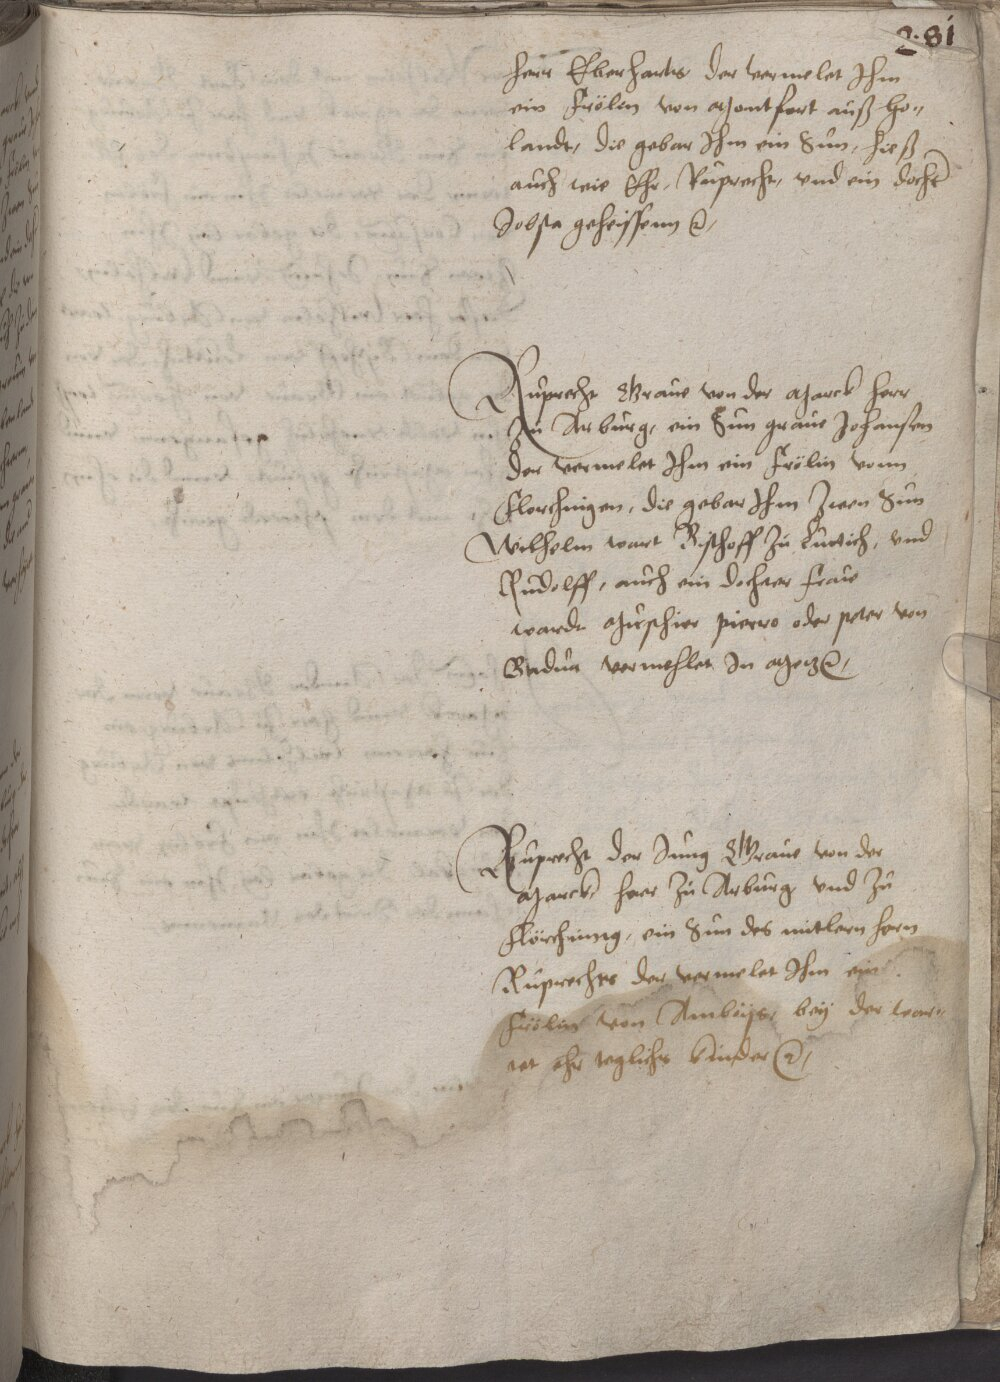 281
Herr Eberharts der vermelet Ihm
ein Frölin von Montfort auß Ho„
landt, die gebar Ihm ein Sun, hieß
auch wie Ehr, Ruprecht, und ein docht
Jobsta geheissenn
Ruprecht Graue von der Marck Herr
Zu Arburg, ein Sun graue Johansen
der vermelet Ihm ein Frölin vonn
Florchingen, die gebar Ihm Zwen Sun
Wilhelm wart Bischoff Zu Luttich, und
Rudolff, auch ein dochter Fraue
wardt pierro oder peter von
Badua vermehlet In Metz
Ruprecht der Jung Graue von der
Marck Herr Zu Arburg und Zu
Flörchinng, ein Sun des mitlern hern
Ruprechts der vermelet Ihm ein
Frölin von Amboys, bey der war„
tet ehr teglichs kinder